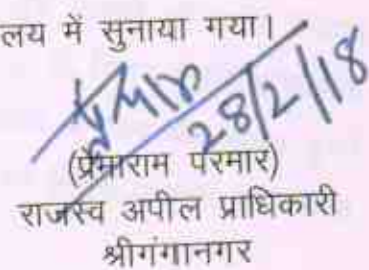 लय में सुनाया गया।
28/2/18
(प्रेमाराम परमार)
राजस्व अपील प्राधिकारी
श्रीगंगानगर